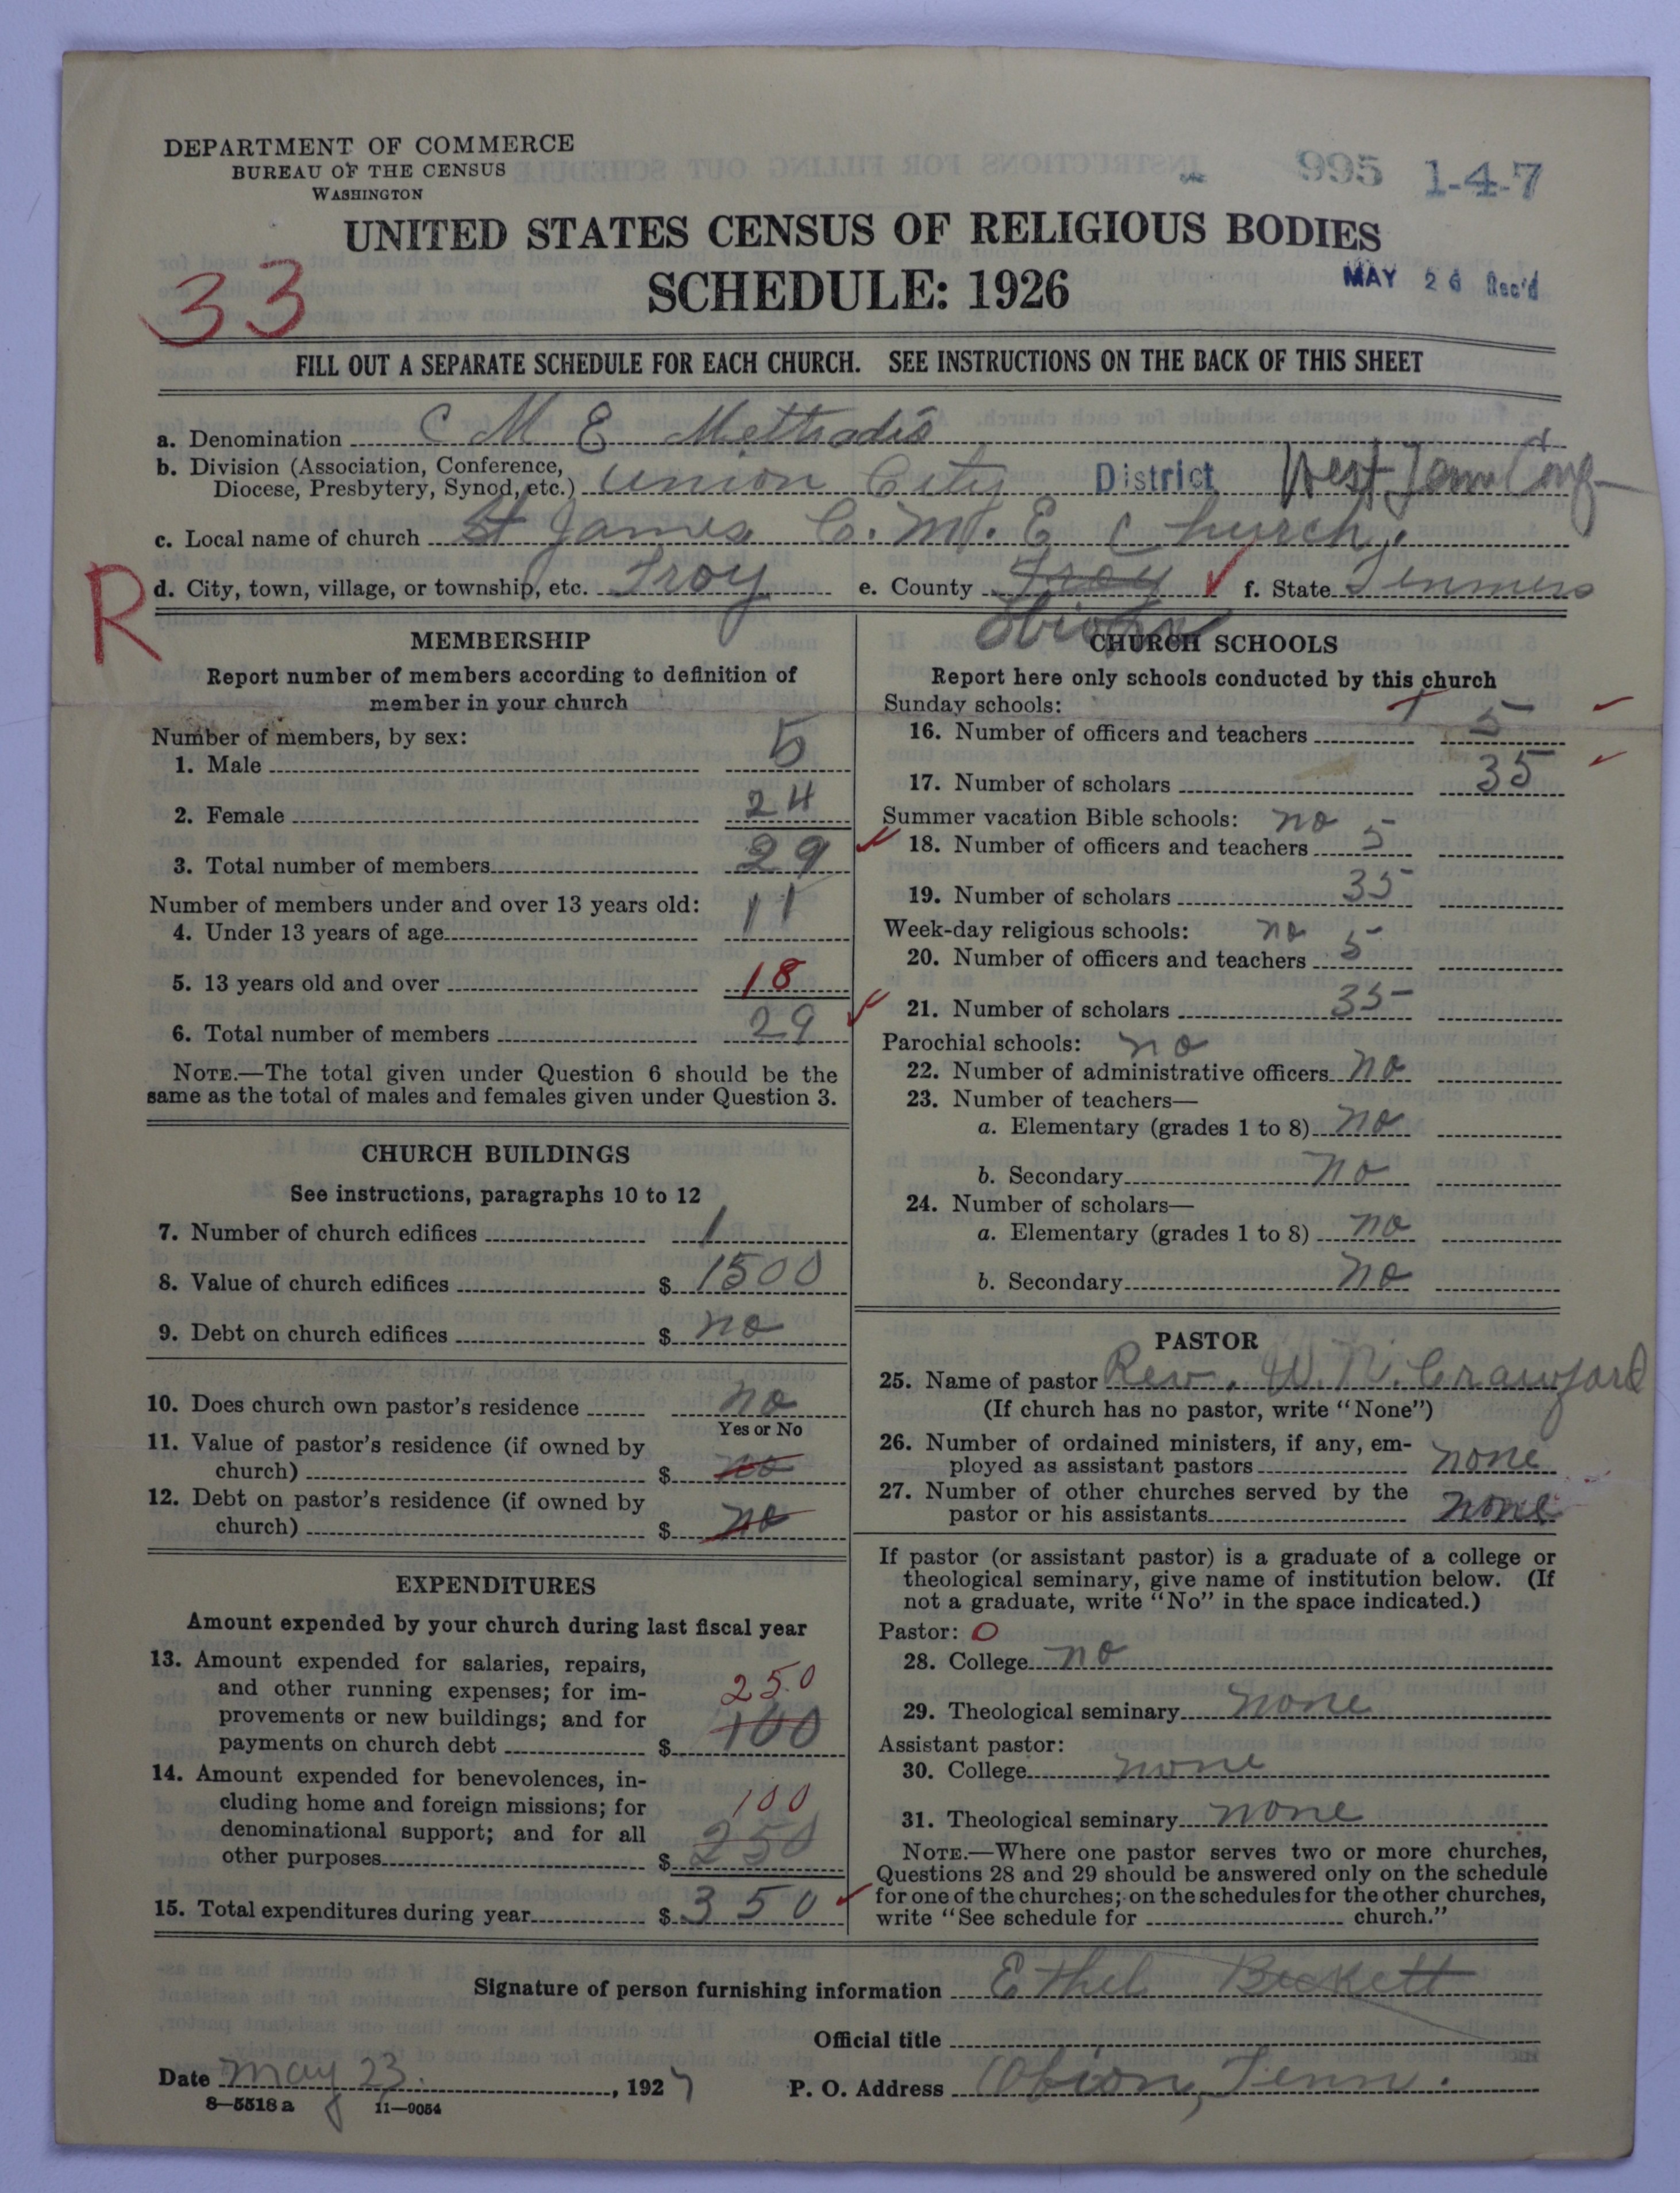 DEPARTMENT OF COMMERCE
BUREAU OF THE CENSUS
WASHINGTON
995 1-4-7
UNITED STATES CENSUS OF RELIGIOUS BODIES
SCHEDULE: 1926
MAY 26 Rec'd
33
FILL OUT A SEPARATE SCHEDULE FOR EACH CHURCH. SEE INSTRUCTIONS ON THE BACK OF THIS SHEET
a. Denomination C M E Methodis
b. Division (Association, Conference, Diocese, Presbytery, Synod, etc.) Union City District West Tenn Conf
c. Local name of church St James C. M. E Church.
R
d. City, town, village, or township, etc. Troy e. County Troy Obion f. State Tennness
MEMBERSHIP
Report number of members according to definition of
member in your church
Number of members, by sex:
1. Male 5
2. Female 24
3. Total number of members 29
Number of members under and over 13 years old:
4. Under 13 years of age 11
5. 13 years old and over 18
6. Total number of members 29
NOTE.—The total given under Question 6 should be the
same as the total of males and females given under Question 3.
CHURCH BUILDINGS
See instructions, paragraphs 10 to 12
7. Number of church edifices 1
8. Value of church edifices $ 1500
9. Debt on church edifices $ no
10. Does church own pastor's residence no
Yes or No
11. Value of pastor's residence (if owned by
church) $ no
12. Debt on pastor's residence (if owned by
church) $ no
EXPENDITURES
Amount expended by your church during last fiscal year
13. Amount expended for salaries, repairs,
and other running expenses; for im-
provements or new buildings; and for
payments on church debt $ 250 100
14. Amount expended for benevolences, in-
cluding home and foreign missions; for
denominational support; and for all
other purposes $ 100 250
15. Total expenditures during year $ 350
CHURCH SCHOOLS
Report here only schools conducted by this church
Sunday schools:
16. Number of officers and teachers 5
17. Number of scholars 35
Summer vacation Bible schools: no
18. Number of officers and teachers 5
19. Number of scholars 35
Week-day religious schools: no
20. Number of officers and teachers 5
21. Number of scholars 35
Parochial schools: no
22. Number of administrative officers no
23. Number of teachers—
a. Elementary (grades 1 to 8) no
b. Secondary no
24. Number of scholars—
a. Elementary (grades 1 to 8) no
b. Secondary no
PASTOR
25. Name of pastor Rev. W. N. Crawford
(If church has no pastor, write "None")
26. Number of ordained ministers, if any, em-
ployed as assistant pastors none
27. Number of other churches served by the
pastor or his assistants none
If pastor (or assistant pastor) is a graduate of a college or
theological seminary, give name of institution below. (If
not a graduate, write "No" in the space indicated.)
Pastor: O
28. College no
29. Theological seminary none
Assistant pastor:
30. College none
31. Theological seminary none
NOTE.—Where one pastor serves two or more churches,
Questions 28 and 29 should be answered only on the schedule
for one of the churches; on the schedules for the other churches,
write "See schedule for church."
Signature of person furnishing information Ethel Beckett
Official title
Date May 23. , 1927 P. O. Address Obion, Tenn.
8—5518 a 11—9054